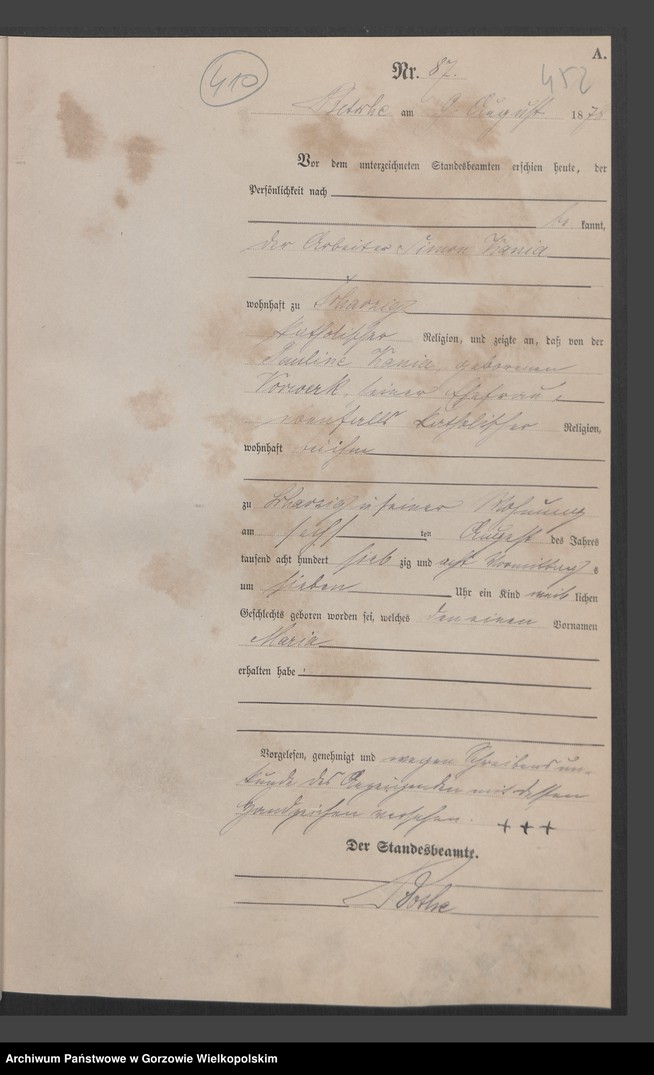 A.
410
Nr. 87.
452
Betsche am 9. August 1878
Vor dem unterzeichneten Standesbeamten erschien heute, der
Persönlichkeit nach
be kannt,
der Arbeiter Simon Kania
wohnhaft zu Scharzig
katholischer Religion, und zeigte an, daß von der
Pauline Kania, geborenen
Vorwerk, seiner Ehefrau,
ebenfalls katholischer Religion,
wohnhaft mit ihm
zu Scharzig in seiner Wohnung
am ten August des Jahres
tausend acht hundert sieb zig und acht Vormittags
um sieben Uhr ein Kind weib lichen
Geschlechts geboren worden sei, welches den einen Vornamen
Maria
erhalten habe.
Vorgelesen, genehmigt und wegen Schreibensun-
kunde des Anzeigenden mit dessen
Handzeichen versehen. +++
Der Standesbeamte.
Bothe